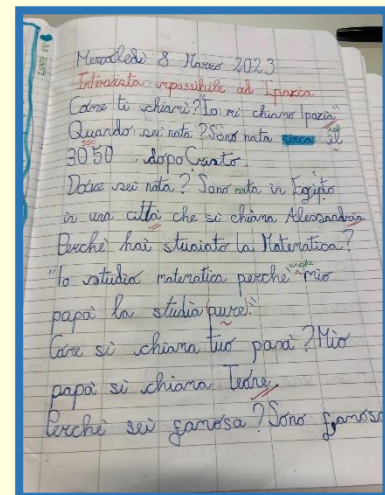 Mercoledì 8 Marzo 2023
Intervista impossibile ad Ipazia
Come ti chiami? "Io mi chiamo Ipazia"
Quando sei nata? Sono nata circa il
350
3050 dopo Cristo.
Dove sei nata? Sono nata in Egitto
in una città che si chiama Alessandria
Perché hai studiato la Matematica?
"Io studio matematica perchè anche mio
papà la studia pure."
Come si chiama tuo papà? Mio
papà si chiama Teone,
Perchè sei famosa? Sono famosa